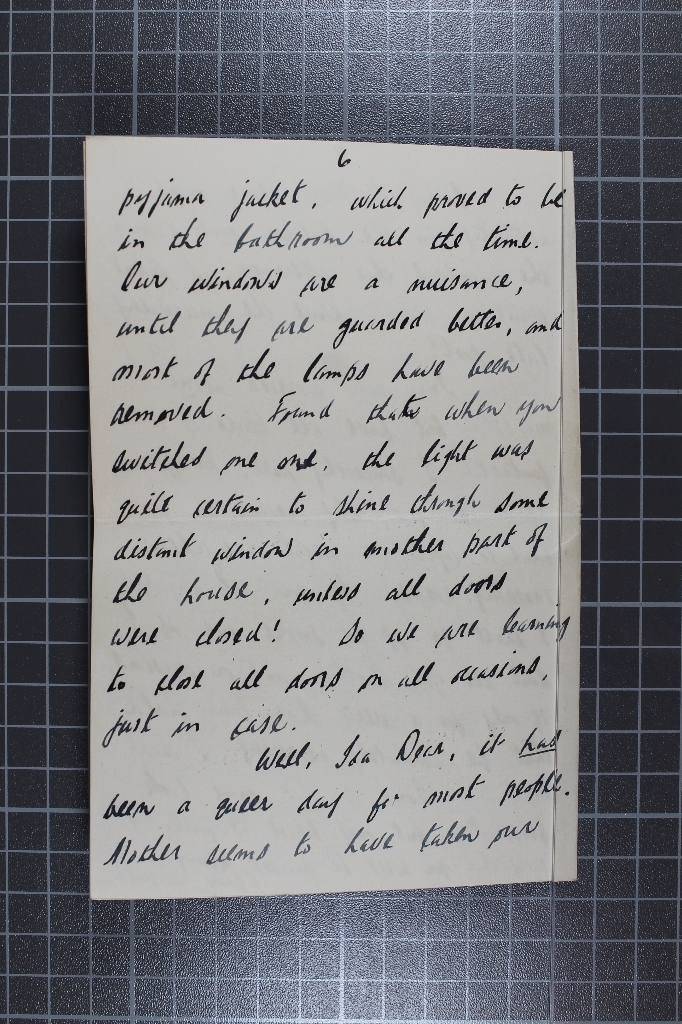 6
pyjama jacket, which proved to be
in the bathroom all the time.
Our windows are a nuisance,
until they are guarded better, and
most of the lamps have been
removed. Found that when you
switched one on, the light was
quite certain to shine through some
distant window in another part of
the house, unless all doors
were closed! So we are learning
to close all doors on all occasions,
just in case.
Well, Ida Dear, it had
been a queer day for most people.
Mother seems to have taken our